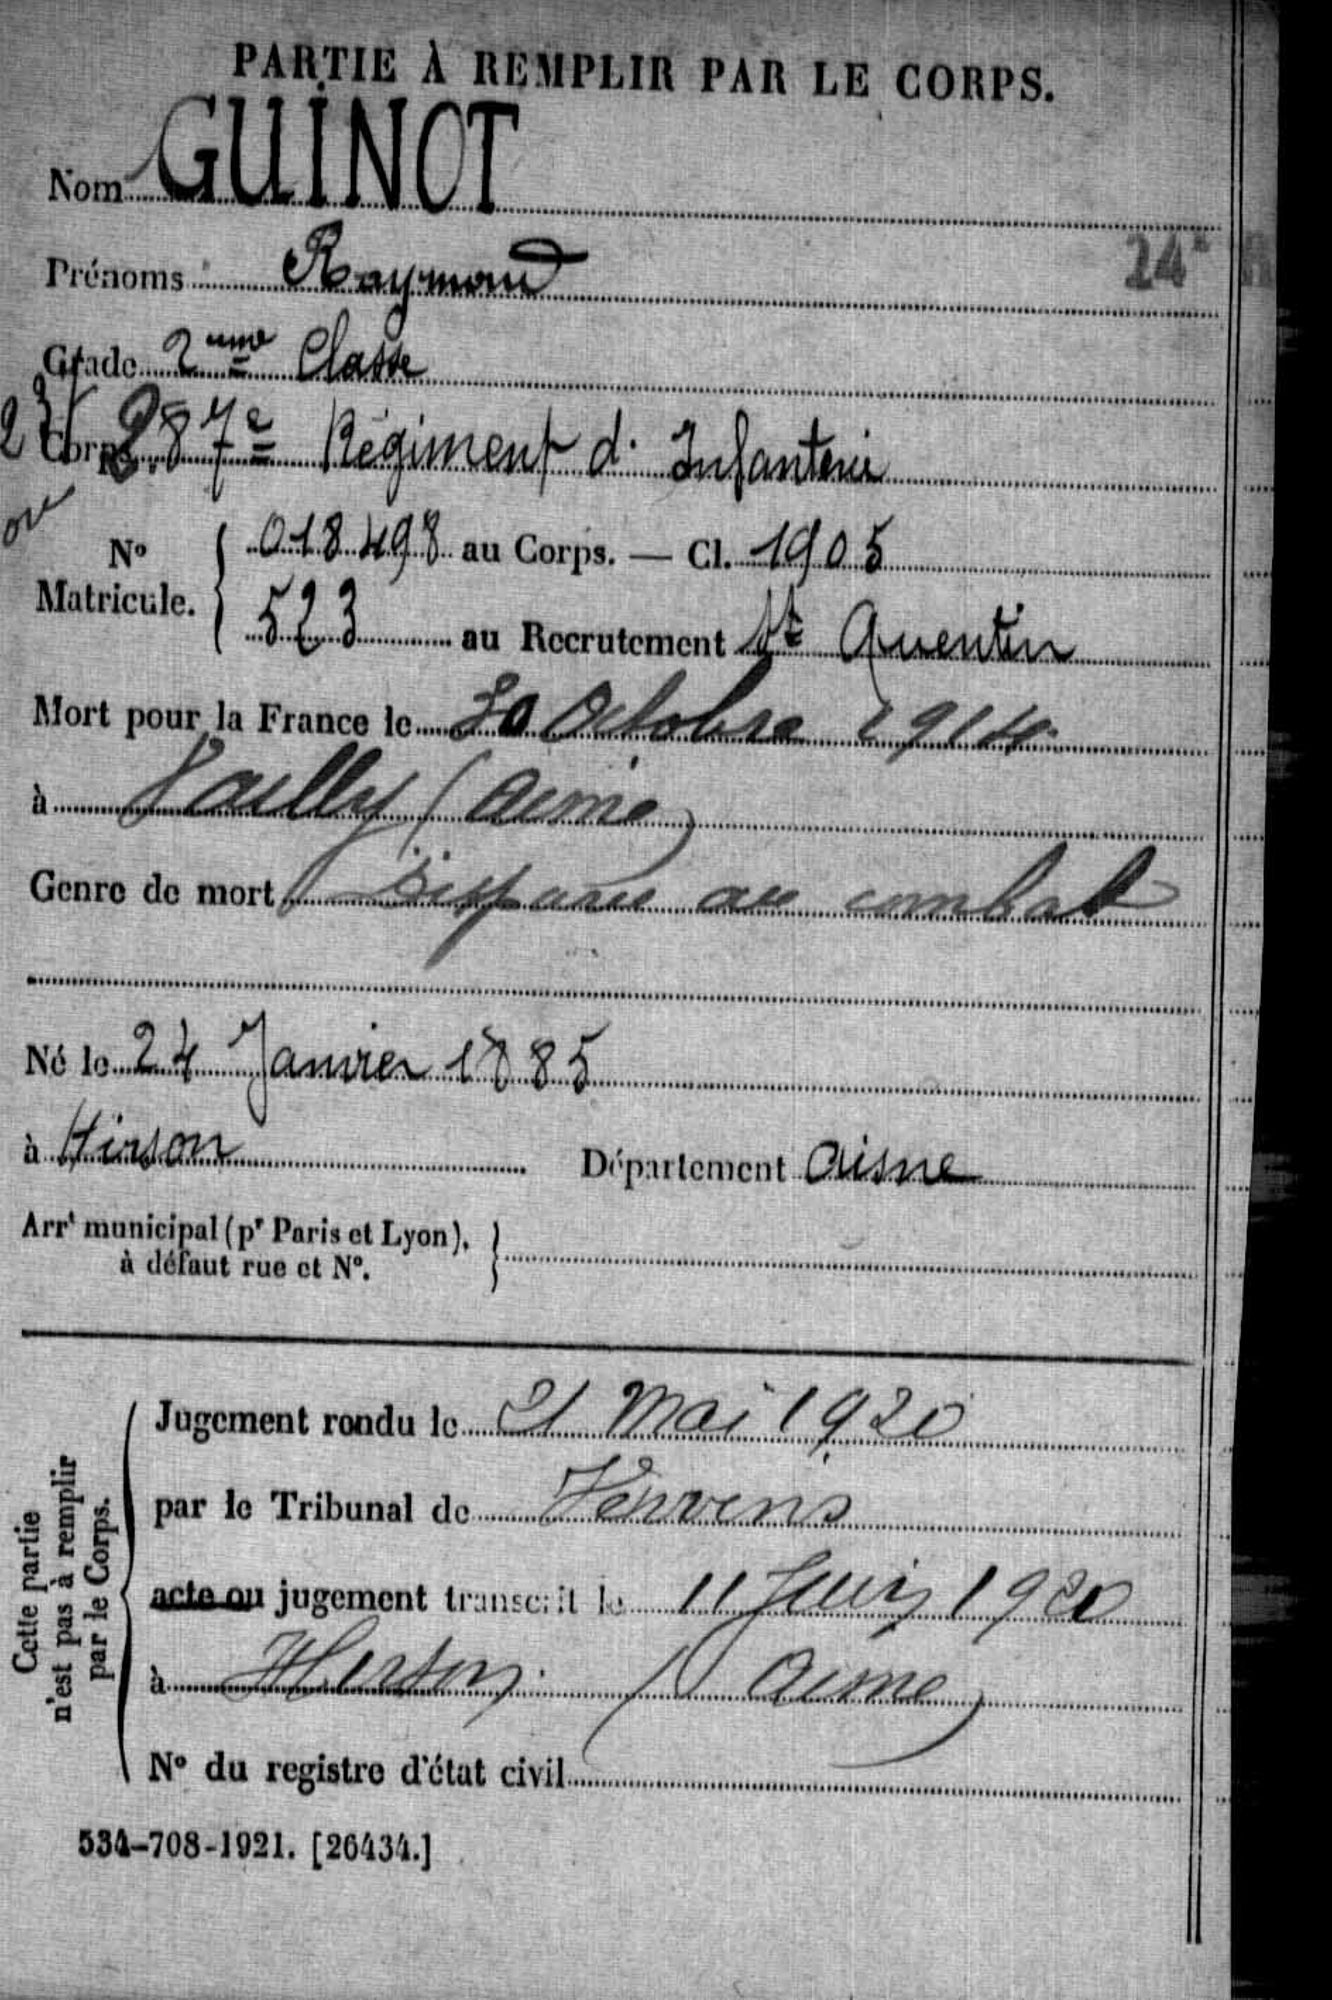 PARTIE À REMPLIR PAR LE CORPS.
Nom GUINOT
24e
Prénoms Raymond
Grade 2ème Classe
Corps 287e Régiment d'Infanterie
ou
No Matricule. { 018498 au Corps. — Cl. 1905
523 au Recrutement St Quentin
Mort pour la France le 30 Octobre 1914
à Vailly (Aisne)
Genre de mort Disparu au combat
Né le 24 Janvier 1885
à Hirson Département Aisne
Arrt municipal (pr Paris et Lyon), à défaut rue et No. }
Cette partie n'est pas à remplir par le Corps.
Jugement rendu le 21 Mai 1920
par le Tribunal de Vervins
acte ou jugement transcrit le 11 Juin 1920
à Hirson (Aisne)
No du registre d'état civil
534-708-1921. [26434.]